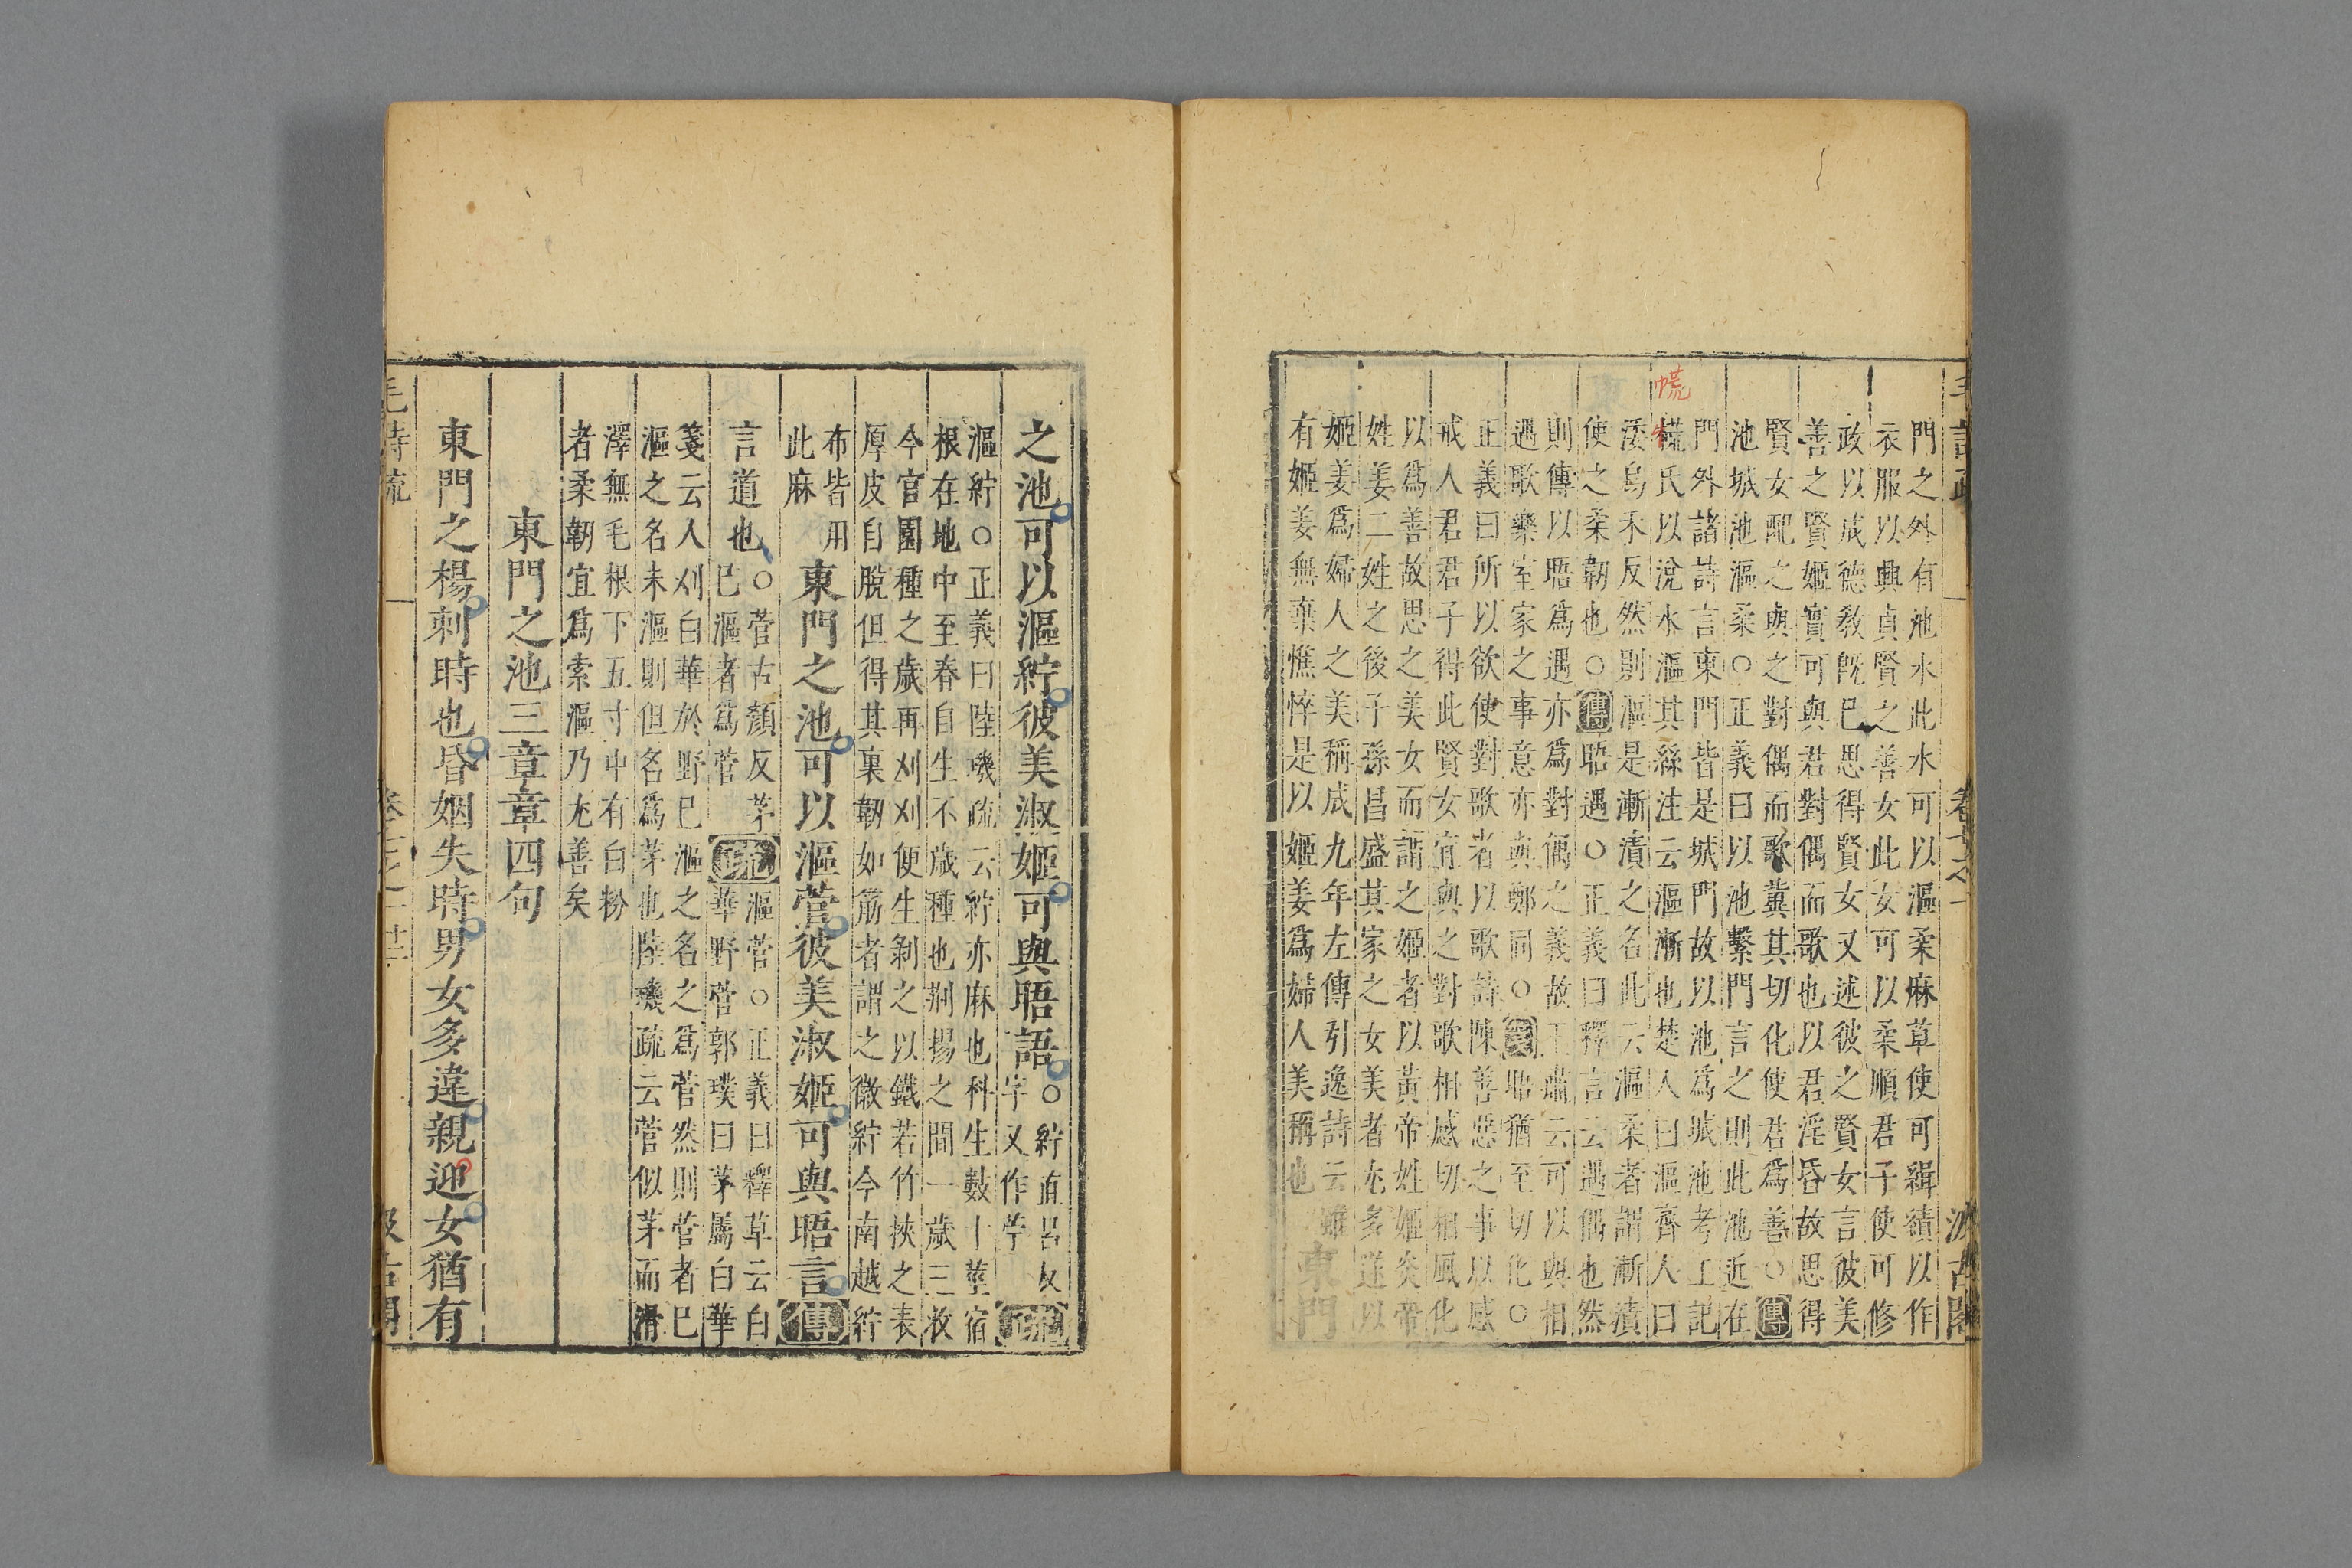 毛詩疏　卷七之一　汲古閣
門之外有池水此水可以漚柔麻草使可緝績以作
衣服以興貞賢之善女此女可以柔順君子使可修
政以成德教旣巳思得賢女又述彼之賢女言彼美
善之賢姬實可與君對偶而歌也以君淫昏故思得
賢女配之與之對偶而歌冀其切化使君爲善○傳
池城池漚柔○正義曰以池繫門言之則此池近在
門外諸詩言東門皆是城門故以池爲城池考工記
慌
㡆氏以涚水漚其絲注云漚漸也楚人曰漚齊人曰
涹烏禾反然則漚是漸漬之名此云漚柔者謂漸漬
使之柔韌也○傳晤遇○正義曰釋言云遇偶也然
則傳以晤爲遇亦爲對偶之義故王肅云可以與相
遇歌樂室家之事意亦與鄭同○箋晤猶至切化○
正義曰所以欲使對歌者以歌詩陳善惡之事以感
戒人君君子得此賢女宜與之對歌相感切相風化
以爲善故思之美女而謂之姬者以黃帝姓姬炎帝
姓姜二姓之後子孫昌盛其家之女美者尤多遂以
姬姜爲婦人之美稱成九年左傳引逸詩云雖
有姬姜無棄憔悴是以姬姜爲婦人美稱也
東門
之池可以漚紵彼美淑姬可與晤語
○紵直呂反
字又作苧
疏
漚紵○正義曰陸璣疏云紵亦麻也科生數十莖宿
根在地中至春自生不歲種也荆揚之間一歲三收
今官園種之歲再刈刈便生剝之以鐵若竹挾之表
厚皮自脫但得其裏韌如筋者謂之徽紵今南越紵
布皆用
此麻
東門之池可以漚菅彼美淑姬可與晤言
傳
言道也
○菅古顏反茅
巳漚者爲菅
疏
漚菅○正義曰釋草云白
華野菅郭璞曰茅屬白華
箋云人刈白華於野巳漚之名之爲菅然則菅者巳
漚之名未漚則但名爲茅也陸璣疏云菅似茅而滑
澤無毛根下五寸中有白粉
者柔韌宜爲索漚乃尤善矣
東門之池三章章四句
東門之楊刺時也昏姻失時男女多違親迎女猶有
毛詩疏　卷七之一　廿二　汲古閣